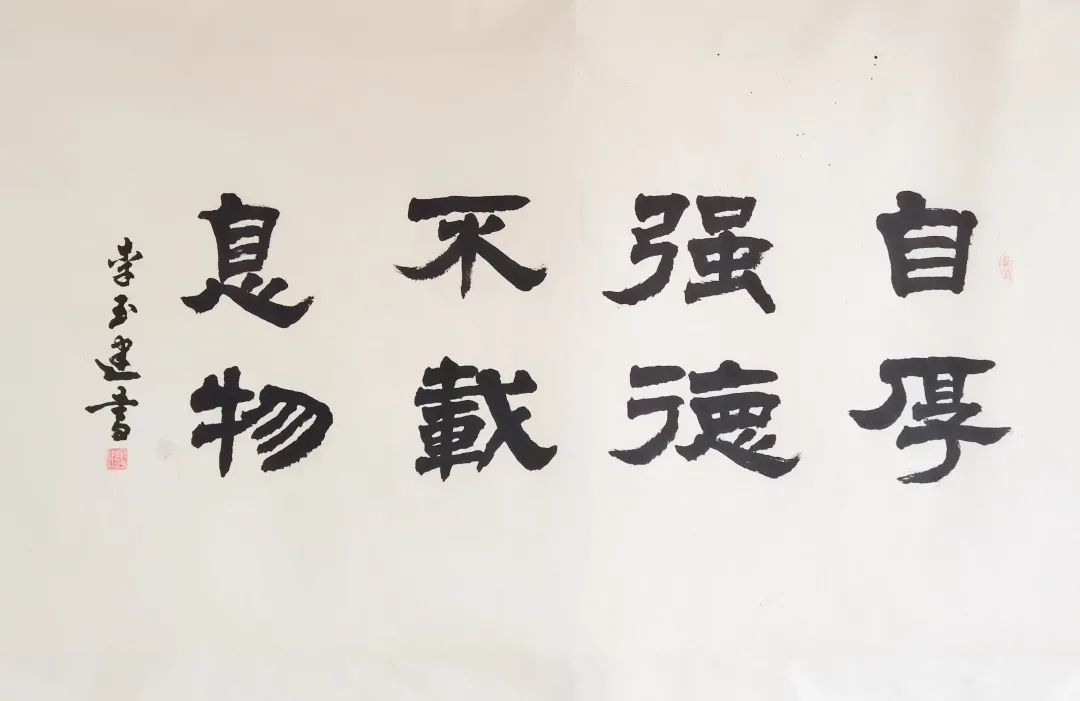 自强不息
厚德载物
李玉建书